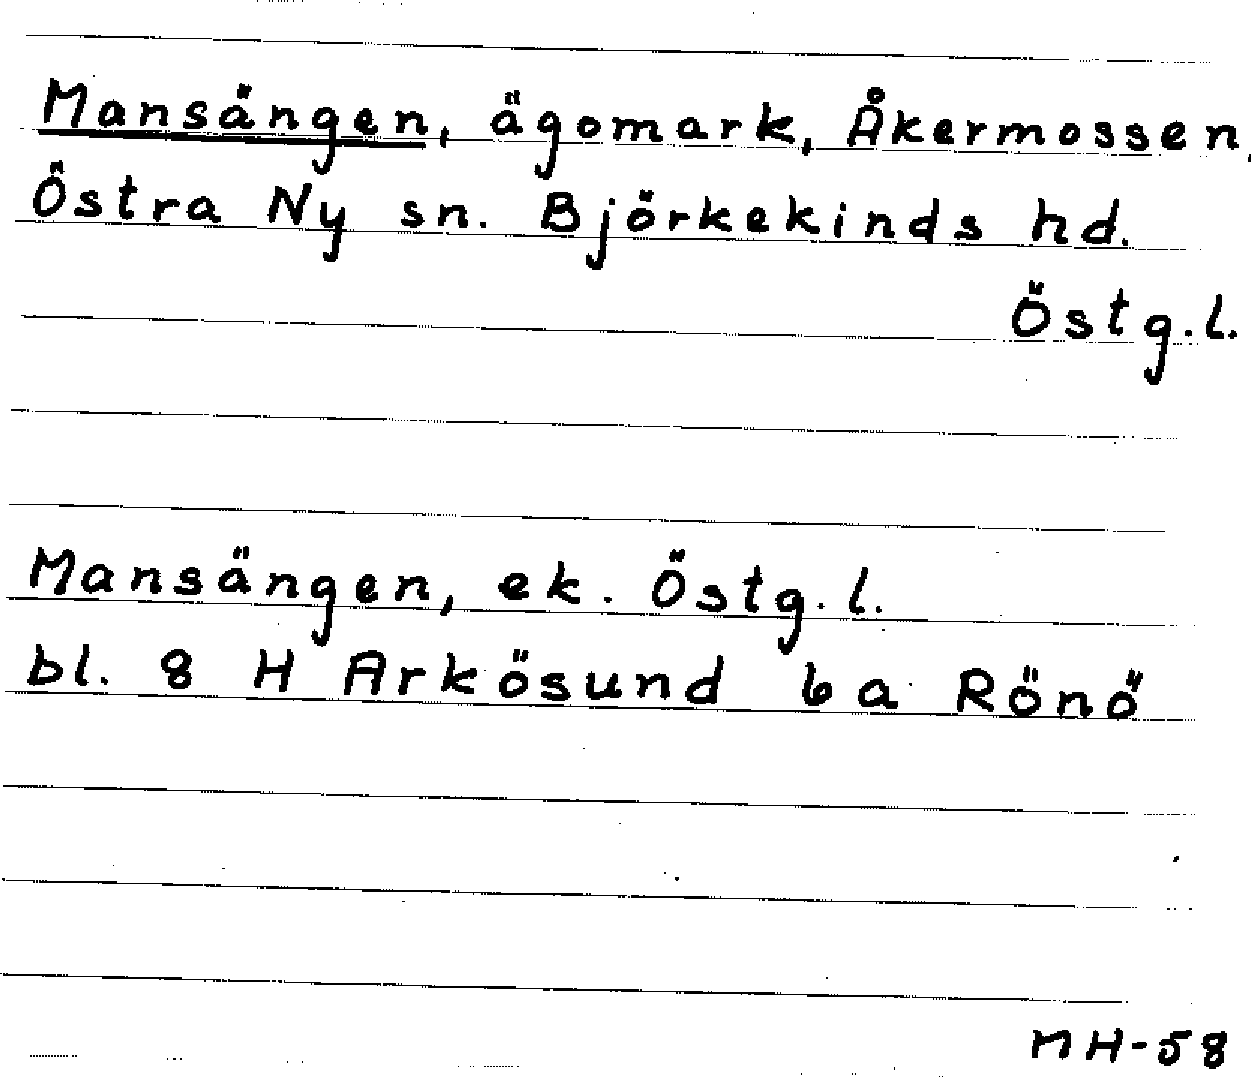 Mansängen, ägomark, Åkermossen,
Östra Ny sn. Björkekinds hd.
Östg.l.
Mansängen, ek. Östg.l.
bl. 8 H Arkösund 6a Rönö
MH-58